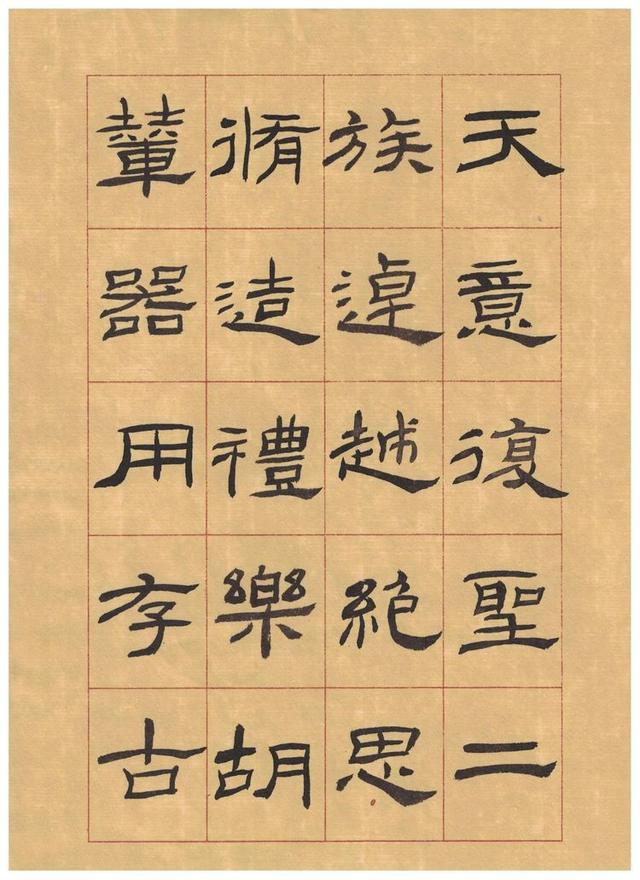 天意復聖二
族逴越絕思
脩造禮樂胡
輦器用存古